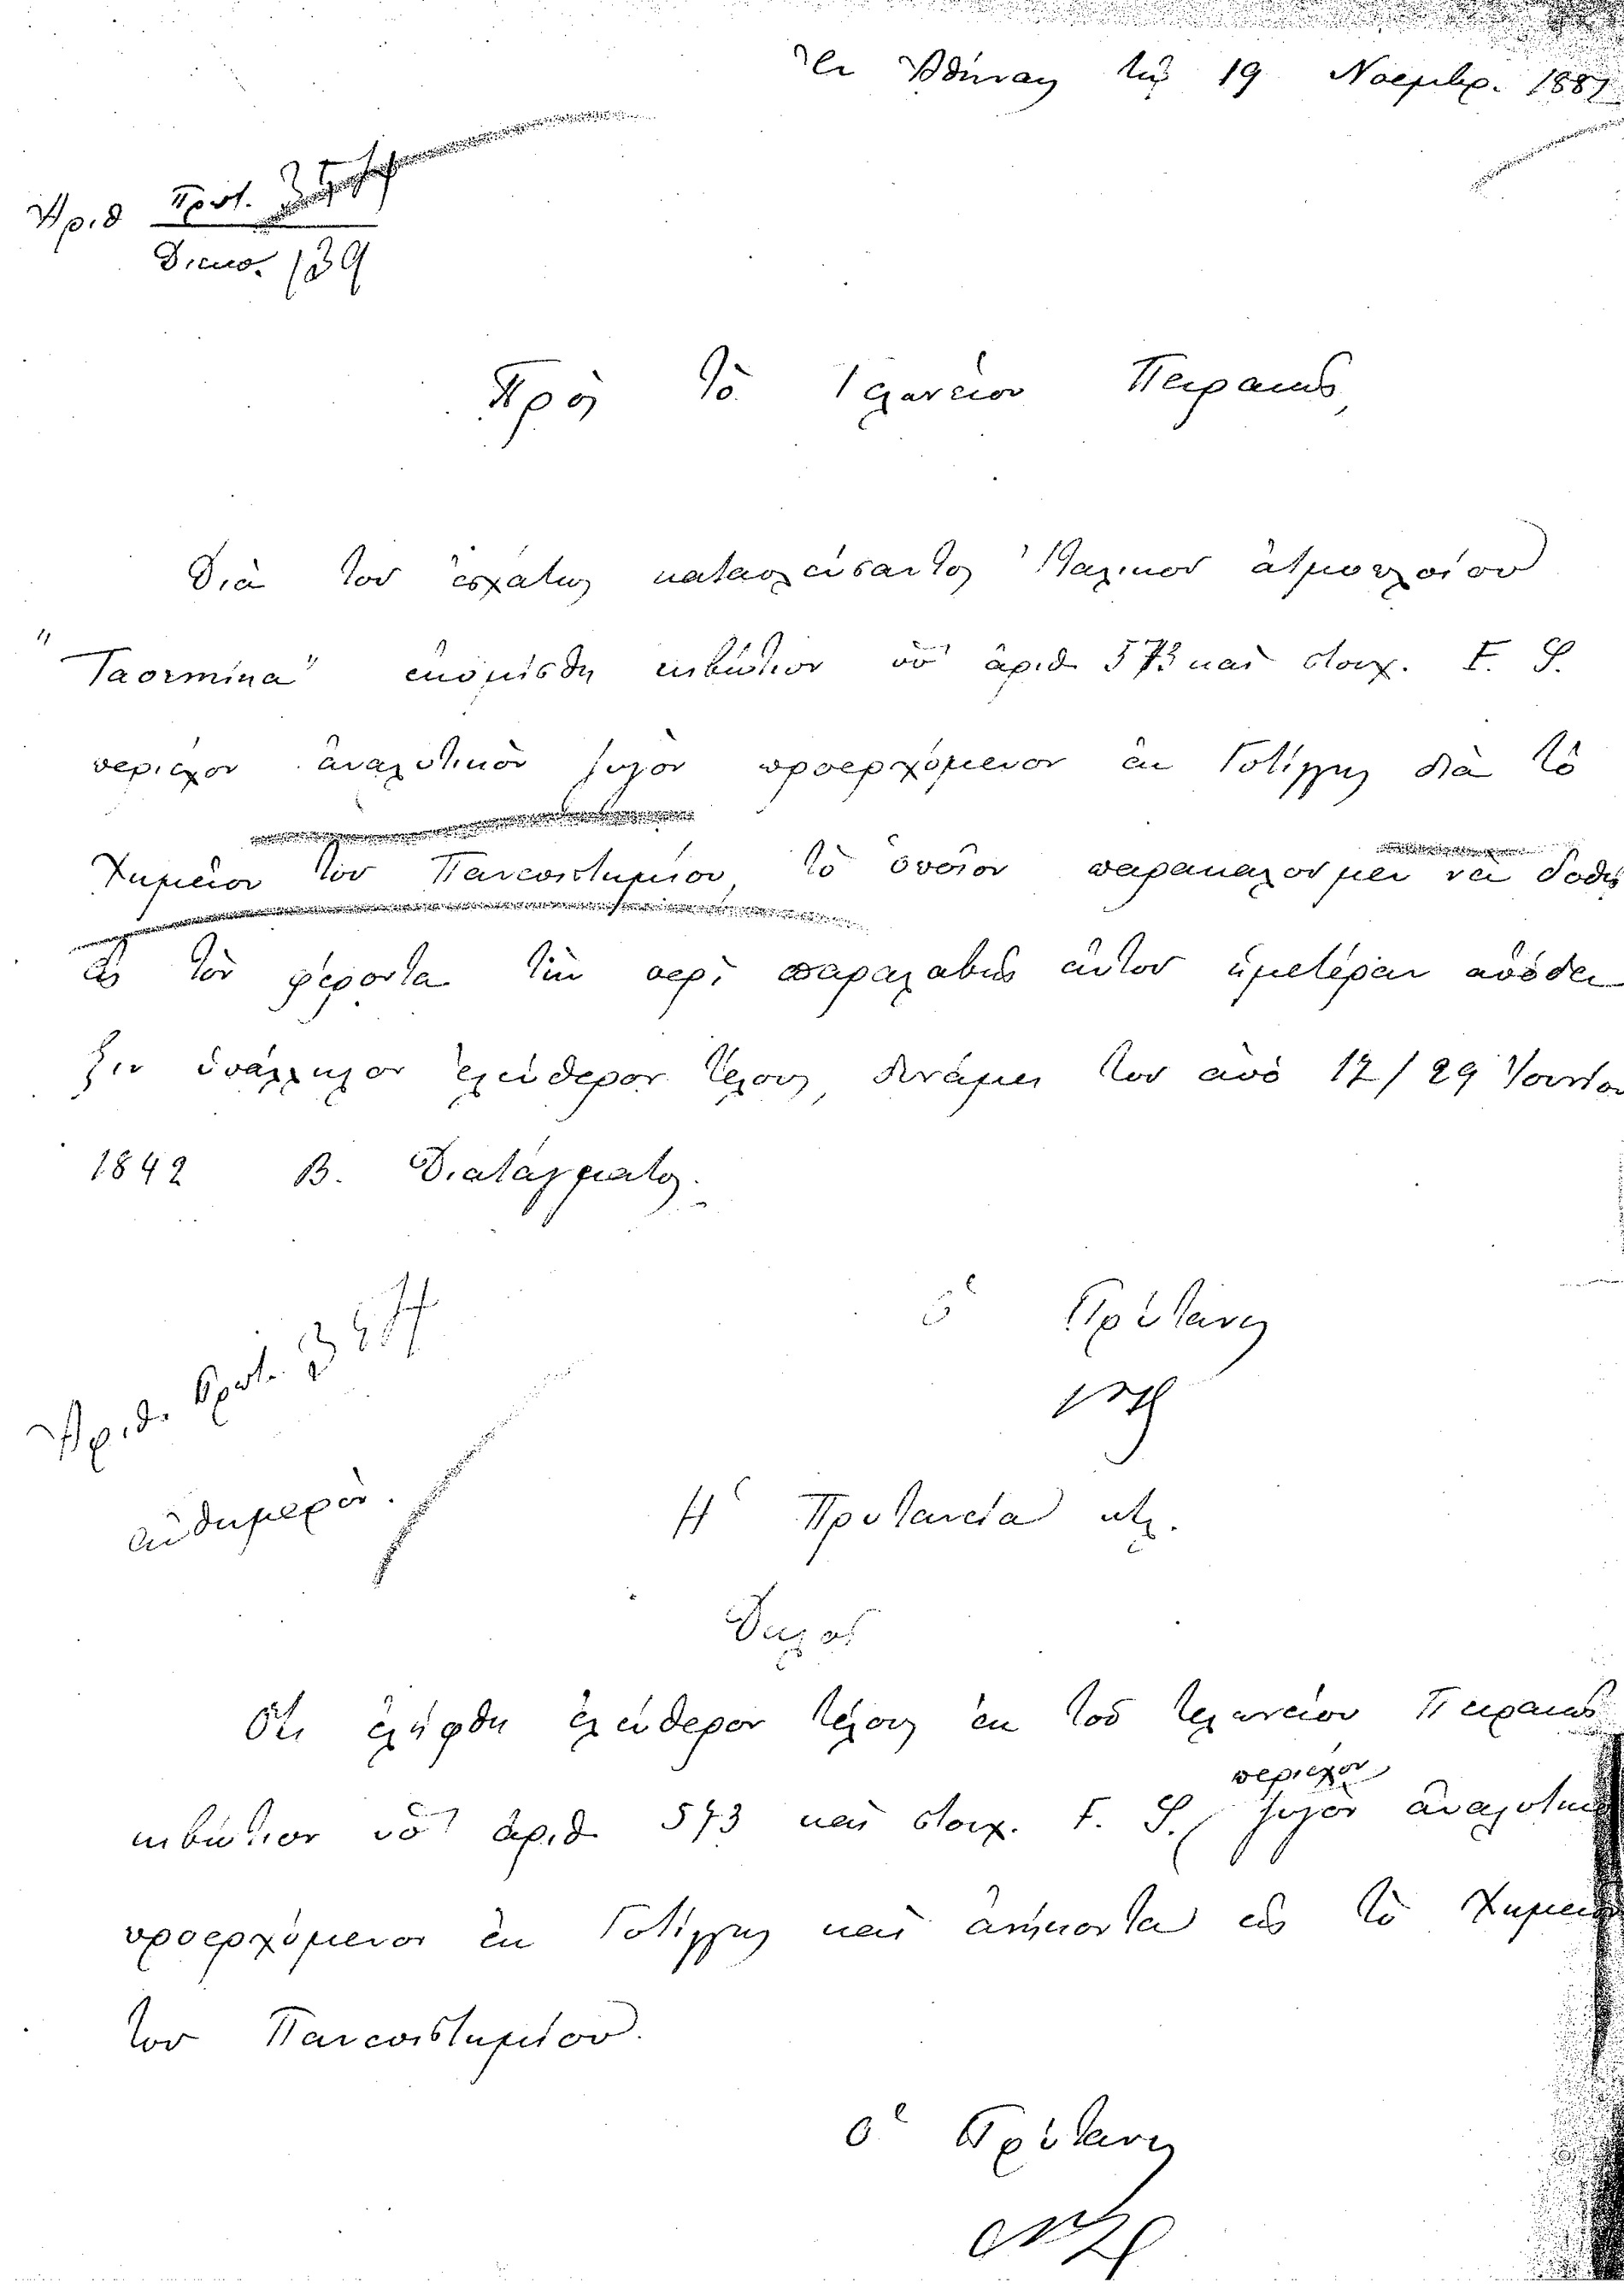 Ἐν Ἀθήναις τῇ 19 Νοεμβρ. 1887
Ἀριθ Πρωτ.
Διεκπ. 139
Πρὸς τὸ Τελωνεῖον Πειραιῶς,
Διὰ τοῦ ἐσχάτως καταπλεύσαντος Ἰταλικοῦ ἀτμοπλοίου
"Taormina" ἐκομίσθη κιβώτιον ὑπ' ἀριθ 573 καὶ στοιχ. F. S.
περιέχον ἀναλυτικὸν ζυγὸν προερχόμενον ἐκ Γοτίγγης διὰ τὸ
Χημεῖον τοῦ Πανεπιστημίου, τὸ ὁποῖον παρακαλοῦμεν νὰ δοθῇ
εἰς τὸν φέροντα τὴν περὶ παραλαβῆς αὐτοῦ ἡμετέραν ἀπόδει
ξιν ὑπάλληλον ἐλεύθερον τέλους, δυνάμει τοῦ ἀπὸ 17/29 Ἰουνίου
1842 Β. Διατάγματος.
Ὁ Πρύτανις
Ἀριθ. Πρωτ.
αὐθημερόν.
Ἡ Πρυτανεία κτλ.
Δηλοῖ
Ὅτι ἐλήφθη ἐλεύθερον τέλους ἐκ τοῦ τελωνείου Πειραιῶς
κιβώτιον ὑπ' ἀριθ. 573 καὶ στοιχ. F. S. περιέχον ζυγὸν ἀναλυτικὸ
προερχόμενον ἐκ Γοτίγγης καὶ ἀνήκοντα εἰς τὸ Χημεῖον
τοῦ Πανεπιστημίου.
Ὁ Πρύτανις